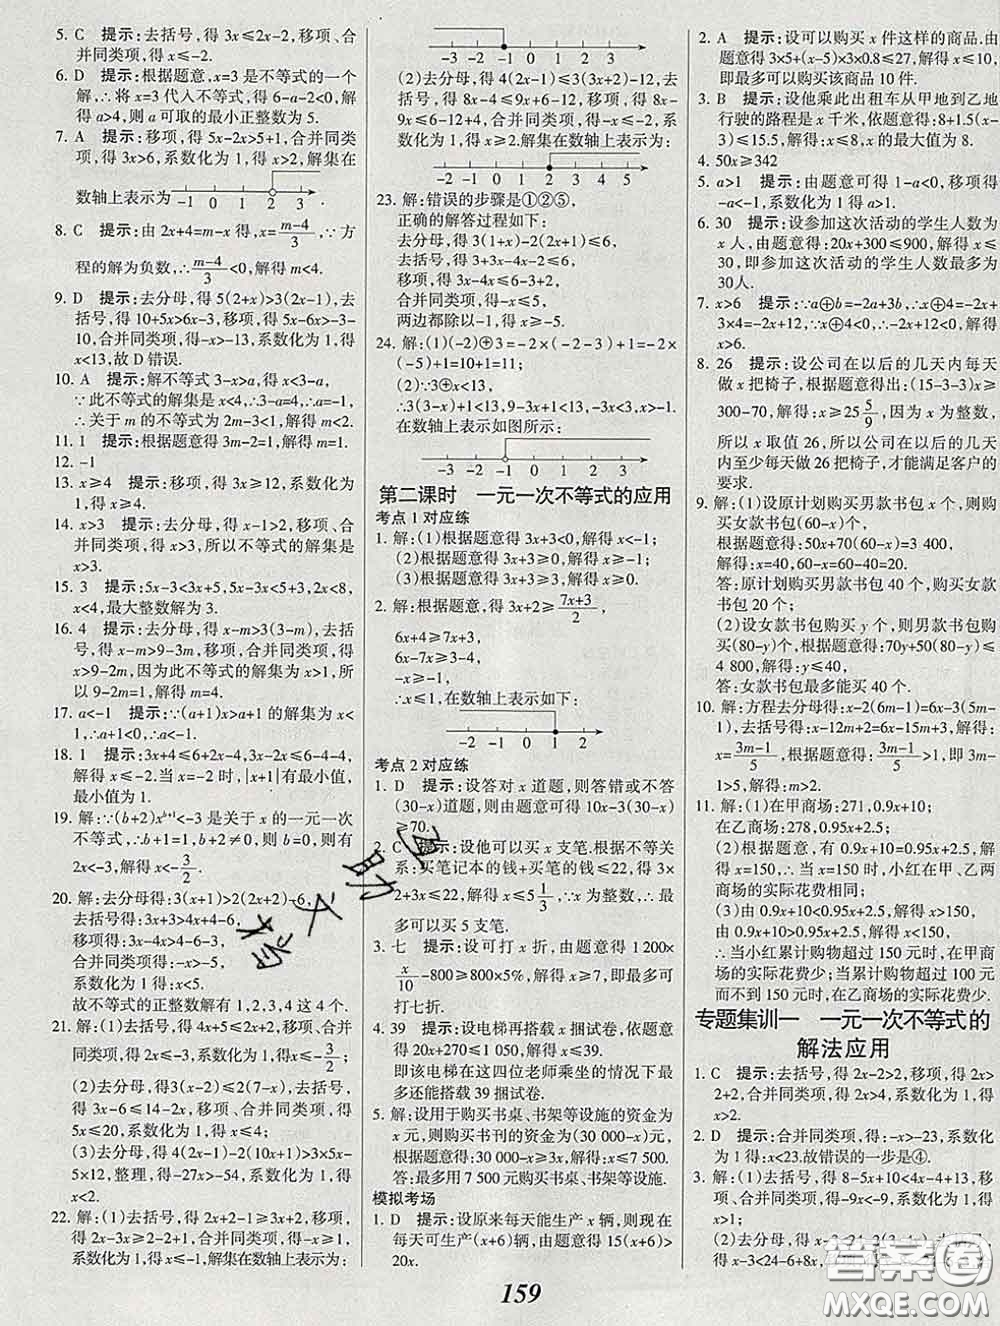 5. C 提示:去括号,得 3x≤2x-2,移项、合
并同类项,得 x≤-2.
6. D 提示:根据题意,x=3 是不等式的一个
解,∴将 x=3 代入不等式,得 6-a-2<0,解
得 a>4,则 a 可取的最小正整数为 5.
7. A 提示:移项,得 5x-2x>5+1,合并同类
项,得 3x>6,系数化为 1,得 x>2,解集在
数轴上表示为 -1 0 1 2 3 .
8. C 提示:由 2x+4=m-x 得,x=(m-4)/3,∵方
程的解为负数,∴(m-4)/3<0,解得 m<4.
9. D 提示:去分母,得 5(2+x)>3(2x-1),去
括号,得 10+5x>6x-3,移项,得 5x-6x>-3-
10,合并同类项,得-x>-13,系数化为 1,得
x<13,故 D 错误.
10. A 提示:解不等式 3-x>a,得 x<3-a,
∵此不等式的解集是 x<4,∴3-a=4,∴a=-1,
∴关于 m 的不等式为 2m+3<1,解得 m<2.
11. 1 提示:根据题意得 3m-2=1,解得 m=1.
12. -1
13. x≥4 提示:移项,得 3x≥12,系数化为 1,
得 x≥4.
14. x>3 提示:去分母,得 x-1>2,移项、合并同
类项,得 x>3,所以不等式的解集是
x>3.
15. 3 提示:5x-3<3x+5,5x-3x<5+3,2x<8,
x<4,最大整数解为 3.
16. 4 提示:去分母,得 x-m>3(3-m),去括
号,得 x-m>9-3m,移项、合并同类项,得
x>9-2m,因为此不等式的解集为 x>1,所
以 9-2m=1,解得 m=4.
17. a<-1 提示:∵(a+1)x>a+1 的解集为 x<
1,∴a+1<0,∴a<-1.
18. 1 提示:3x+4≤6+2x-4,3x-2x≤6-4-4,
解得 x≤-2.∴当 x=-2 时,|x+1|有最小值,
最小值为 1.
19. 解:∵(b+2)x^(b+1)<-3 是关于 x 的一元一次
不等式,∴b+1=1,b+2≠0,则 b=0,则有
2x<-3,解得 x<-3/2.
20. 解:去分母得:3(x+1)>2(2x+2)-6,
去括号得:3x+3>4x+4-6,
移项得:3x-4x>4-6-3,
合并同类项得:-x>-5,
系数化为 1 得:x<5.
故不等式的正整数解有 1,2,3,4 这 4 个.
21. 解:(1)去括号,得 4x+5≤2x+2,移项、合并
同类项,得 2x≤-3,系数化为 1,得 x≤-3/2
(2)去分母,得 3(x-2)≤2(7-x),去括号,得
3x-6≤14-2x,移项、合并同类项,得
5x≤20,系数化为 1,得 x≤4.
(3)去分母,得 4(2x-1)-2(10x+1)>3×5x-
5×12,整理,得-27x>-54,系数化为 1,得
x<2.
22. 解:(1)去括号,得 2x+2-1≥3x+2,移项,得
2x-3x≥2-2+1,合并同类项,得-x≥1,系数
化为 1,得 x≤-1,解集在数轴上表示为:
-3 -2 -1 0 1 2 3
(2)去分母,得 4(2x-1)≤3(3x+2)-12,去括
号,得 8x-4≤9x+6-12,移项,得 8x-
9x≤6-12+4,合并同类项,得-x≤-2,系数
化为 1,得 x≥2.解集在数轴上表示为:
-1 0 1 2 3 4 5
23. 解:错误的步骤是①②⑤,
正确的解答过程如下:
去分母,得 3(1+x)-2(2x+1)≤6,
去括号,得 3+3x-4x-2≤6,
移项,得 3x-4x≤6-3+2,
合并同类项,得-x≤5,
两边都除以-1,得 x≥-5.
24. 解:(1)(-2)⊕3=-2×(-2-3)+1=-2×
(-5)+1=10+1=11;
(2)∵3⊕x<13,
∴3(3-x)+1<13,9-3x+1<13,-3x<3,x>-1.
在数轴上表示如图所示:
-3 -2 -1 0 1 2 3
第二课时 一元一次不等式的应用
考点 1 对应练
1. 解:(1)根据题意得 3x+3<0,解得 x<-1;
(2)根据题意得 3x+3≥0,解得 x≥-1;
(3)根据题意得 3x+3≥3,解得 x≥0.
2. 解:根据题意,得 3x+2≥(7x+3)/2,
6x+4≥7x+3,
6x-7x≥3-4,
-x≥-1,
∴x≤1,在数轴上表示如下:
-2 -1 0 1 2
考点 2 对应练
1. D 提示:设答对 x 道题,则答错或不答
(30-x)道题,则由题意可得 10x-3(30-x)
≥70.
2. C 提示:设他可以买 x 支笔.根据不等关
系:买笔记本的钱+买笔的钱≤22,得 3×
2+3x≤22,解得 x≤5 1/3,∵x 为整数,∴最
多可以买 5 支笔.
3. 七 提示:设可打 x 折,由题意得 1 200×
x/10-800≥800×5%,解得 x≥7,即最多可
打七折.
4. 39 提示:设电梯再搭载 x 捆试卷,依题意
得 20x+270≤1 050,解得 x≤39.
即该电梯在这四位老师乘坐的情况下最
多还能搭载 39 捆试卷.
5. 解:设用于购买书桌、书架等设施的资金为
x 元,则购买书刊的资金为(30 000-x)元,
根据题意得:30 000-x≥3x,解得:x≤7 500.
答:最多用 7 500 元购买书桌、书架等设施.
模拟考场
1. D 提示:设原来每天能生产 x 辆,则现在
每天可生产(x+6)辆,由题意得 15(x+6)>
20x.
2. A 提示:设可以购买 x 件这样的商品.由
题意得 3×5+(x-5)×3×0.8≤27,解得 x≤10,
即最多可以购买该商品 10 件.
3. B 提示:设他乘此出租车从甲地到乙地
行驶的路程是 x 千米,依题意得:8+1.5(x-
3)≤15.5,解得:x≤8,x 的最大值为 8.
4. 50x≥342
5. a>1 提示:由题意可得 1-a<0,移项得
-a<-1,系数化为 1 得 a>1.
6. 30 提示:设参加这次活动的学生人数为
x 人,由题意得:20x+300≤900,解得:x≤
30,即参加这次活动的学生人数最多为
30人.
7. x>6 提示:∵a⊕b=-2a+3b,∴x⊕4=-2x+
3×4=-2x+12,∵x⊕4<0,∴-2x+12<0,解得
x>6.
8. 26 提示:设公司在以后的几天内每天
做 x 把椅子,根据题意得出:(15-3-3)x≥
300-70,解得:x≥25 5/9,因为 x 为整数,
所以 x 取值 26,所以公司在以后的几天
内至少每天做 26 把椅子,才能满足客户的
要求.
9. 解:(1)设原计划购买男款书包 x 个,则购
买女款书包(60-x)个,
根据题意得:50x+70(60-x)=3 400,
解得:x=40,60-x=60-40=20.
答:原计划购买男款书包 40 个,购买女款
书包 20 个;
(2)设女款书包能买 y 个,则购买男款书包
(80-y)个,根据题意得:70y+50(80-y)≤
4 800,解得:y≤40.
答:女款书包最多能买 40 个.
10. 解:方程去分母得:x-2(6m-1)=6x-3(5m-
1),去括号得:x-12m+2=6x-15m+3,解得:
x=(3m-1)/5,根据题意得:(3m-1)/5>1,即 3m-
1>5,解得:m>2.
11. 解:(1)在甲商场:271,0.9x+10;
在乙商场:278,0.95x+2.5.
(2)根据题意,有 0.9x+10=0.95x+2.5,解得
x=150,∴当 x=150 时,小红在甲、乙两
商场的实际花费相同;
(3)由 0.9x+10<0.95x+2.5,解得 x>150,
0.9x+10>0.95x+2.5,解得 x<150,
∴当小红累计购物超过 150 元时,在甲商
场的实际花费少;当累计购物超过 100 元
而不到 150 元时,在乙商场的实际花费少.
专题集训一 一元一次不等式的
解法应用
1. C 提示:去括号,得 2x-2>2,移项,得 2x>
2+2,合并同类项,得 2x>4,系数化为 1,得
x>2.
2. D 提示:合并同类项,得:-x>-23,系数化
为 1 得:x<23.故错误的一步是④.
3. 解:(1)去括号,得 8-5x+10<4x-4+13,移
项、合并同类项,得-9x<-9,系数化为 1,得
x>1.
(2)去分母,得
x-3<24-6+8x,
159
查助文稍
答案圈
MXQE.COM